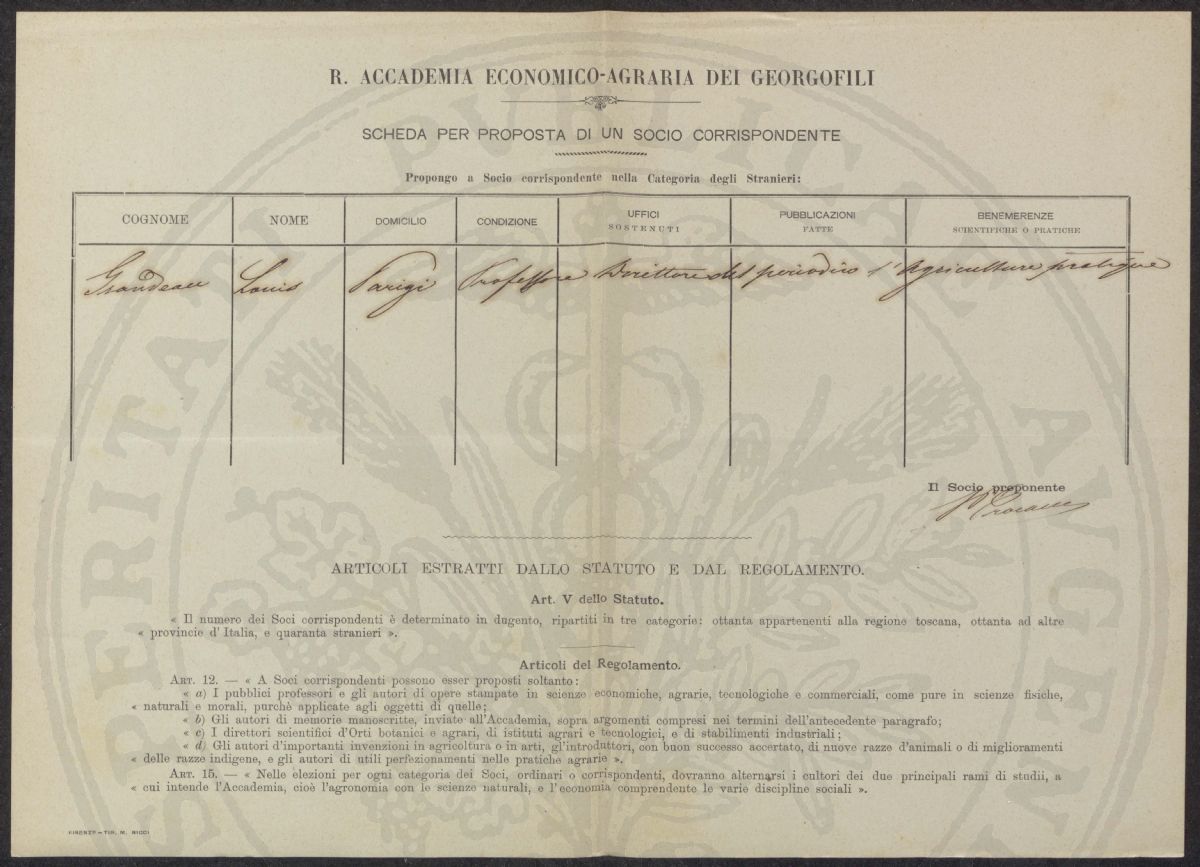 R. ACCADEMIA ECONOMICO-AGRARIA DEI GEORGOFILI
SCHEDA PER PROPOSTA DI UN SOCIO CORRISPONDENTE
Propongo a Socio corrispondente nella Categoria degli Stranieri:
COGNOME NOME DOMICILIO CONDIZIONE UFFICI SOSTENUTI PUBBLICAZIONI FATTE BENEMERENZE SCIENTIFICHE O PRATICHE
Grandeau Louis Parigi Professore Direttore del periodico l'Agriculture pratique
Il Socio proponente
ARTICOLI ESTRATTI DALLO STATUTO E DAL REGOLAMENTO.
Art. V dello Statuto.
« Il numero dei Soci corrispondenti è determinato in dugento, ripartiti in tre categorie: ottanta appartenenti alla regione toscana, ottanta ad altre
« provincie d'Italia, e quaranta stranieri ».
Articoli del Regolamento.
ART. 12. — « A Soci corrispondenti possono esser proposti soltanto:
« a) I pubblici professori e gli autori di opere stampate in scienze economiche, agrarie, tecnologiche e commerciali, come pure in scienze fisiche,
« naturali e morali, purchè applicate agli oggetti di quelle;
« b) Gli autori di memorie manoscritte, inviate all'Accademia, sopra argomenti compresi nei termini dell'antecedente paragrafo;
« c) I direttori scientifici d'Orti botanici e agrari, di istituti agrari e tecnologici, e di stabilimenti industriali;
« d) Gli autori d'importanti invenzioni in agricoltura o in arti, gl'introduttori, con buon successo accertato, di nuove razze d'animali o di miglioramenti
« delle razze indigene, e gli autori di utili perfezionamenti nelle pratiche agrarie ».
ART. 15. — « Nelle elezioni per ogni categoria dei Soci, ordinari o corrispondenti, dovranno alternarsi i cultori dei due principali rami di studii, a
« cui intende l'Accademia, cioè l'agronomia con le scienze naturali, e l'economia comprendente le varie discipline sociali ».
FIRENZE – TIP. M. RICCI